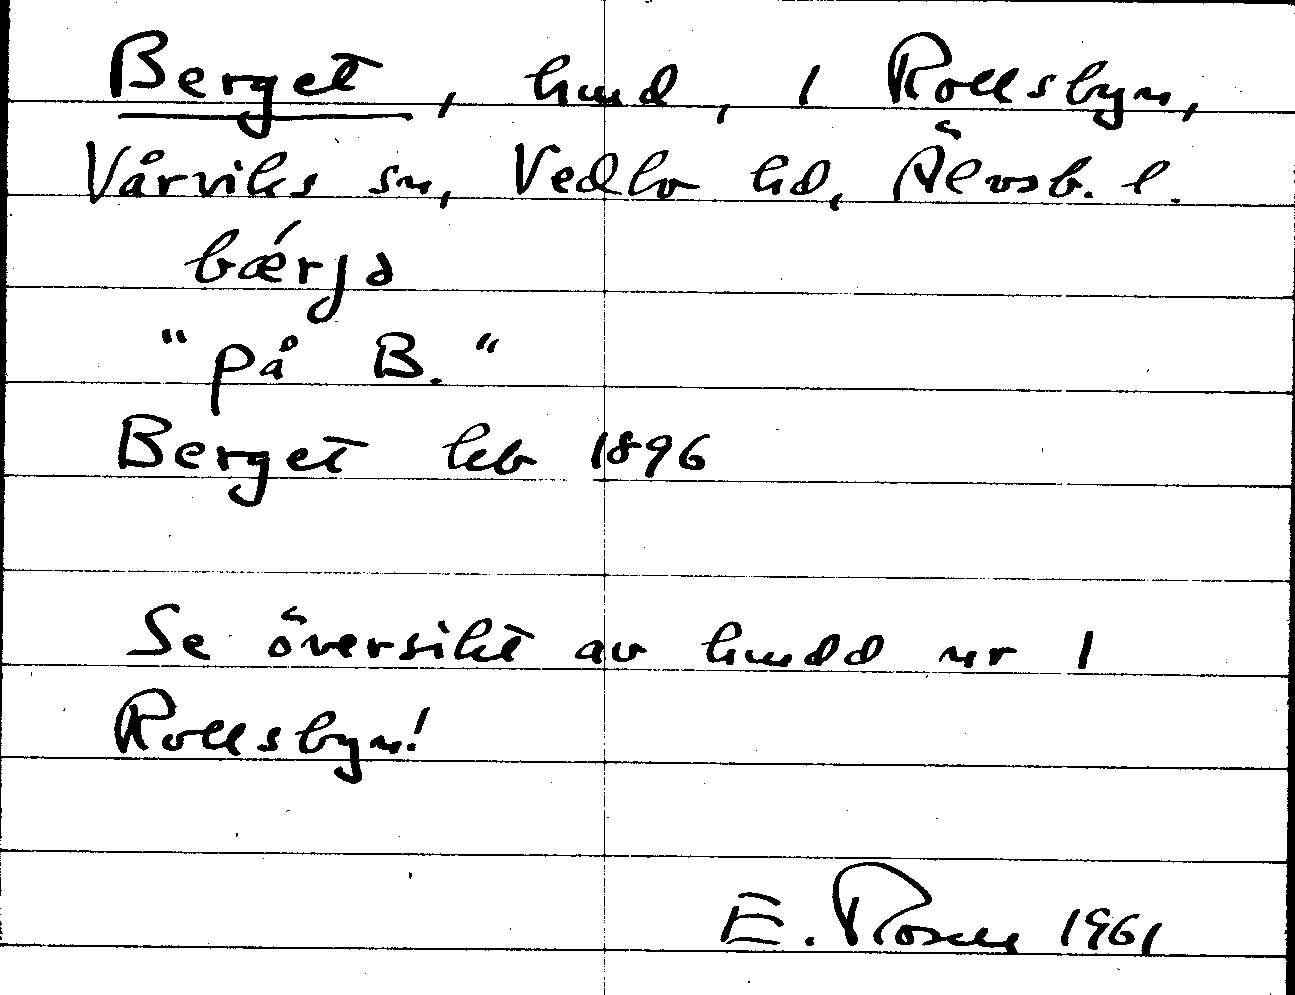 Berget, hmd, 1 Rollsbyn,
Vårviks sn, Vedbo hd, Älvsb. l.
bǽrjə
"på B."
Berget kb 1896
Se översikt av hmdd nr 1
Rollsbyn!
E. Rosell 1961